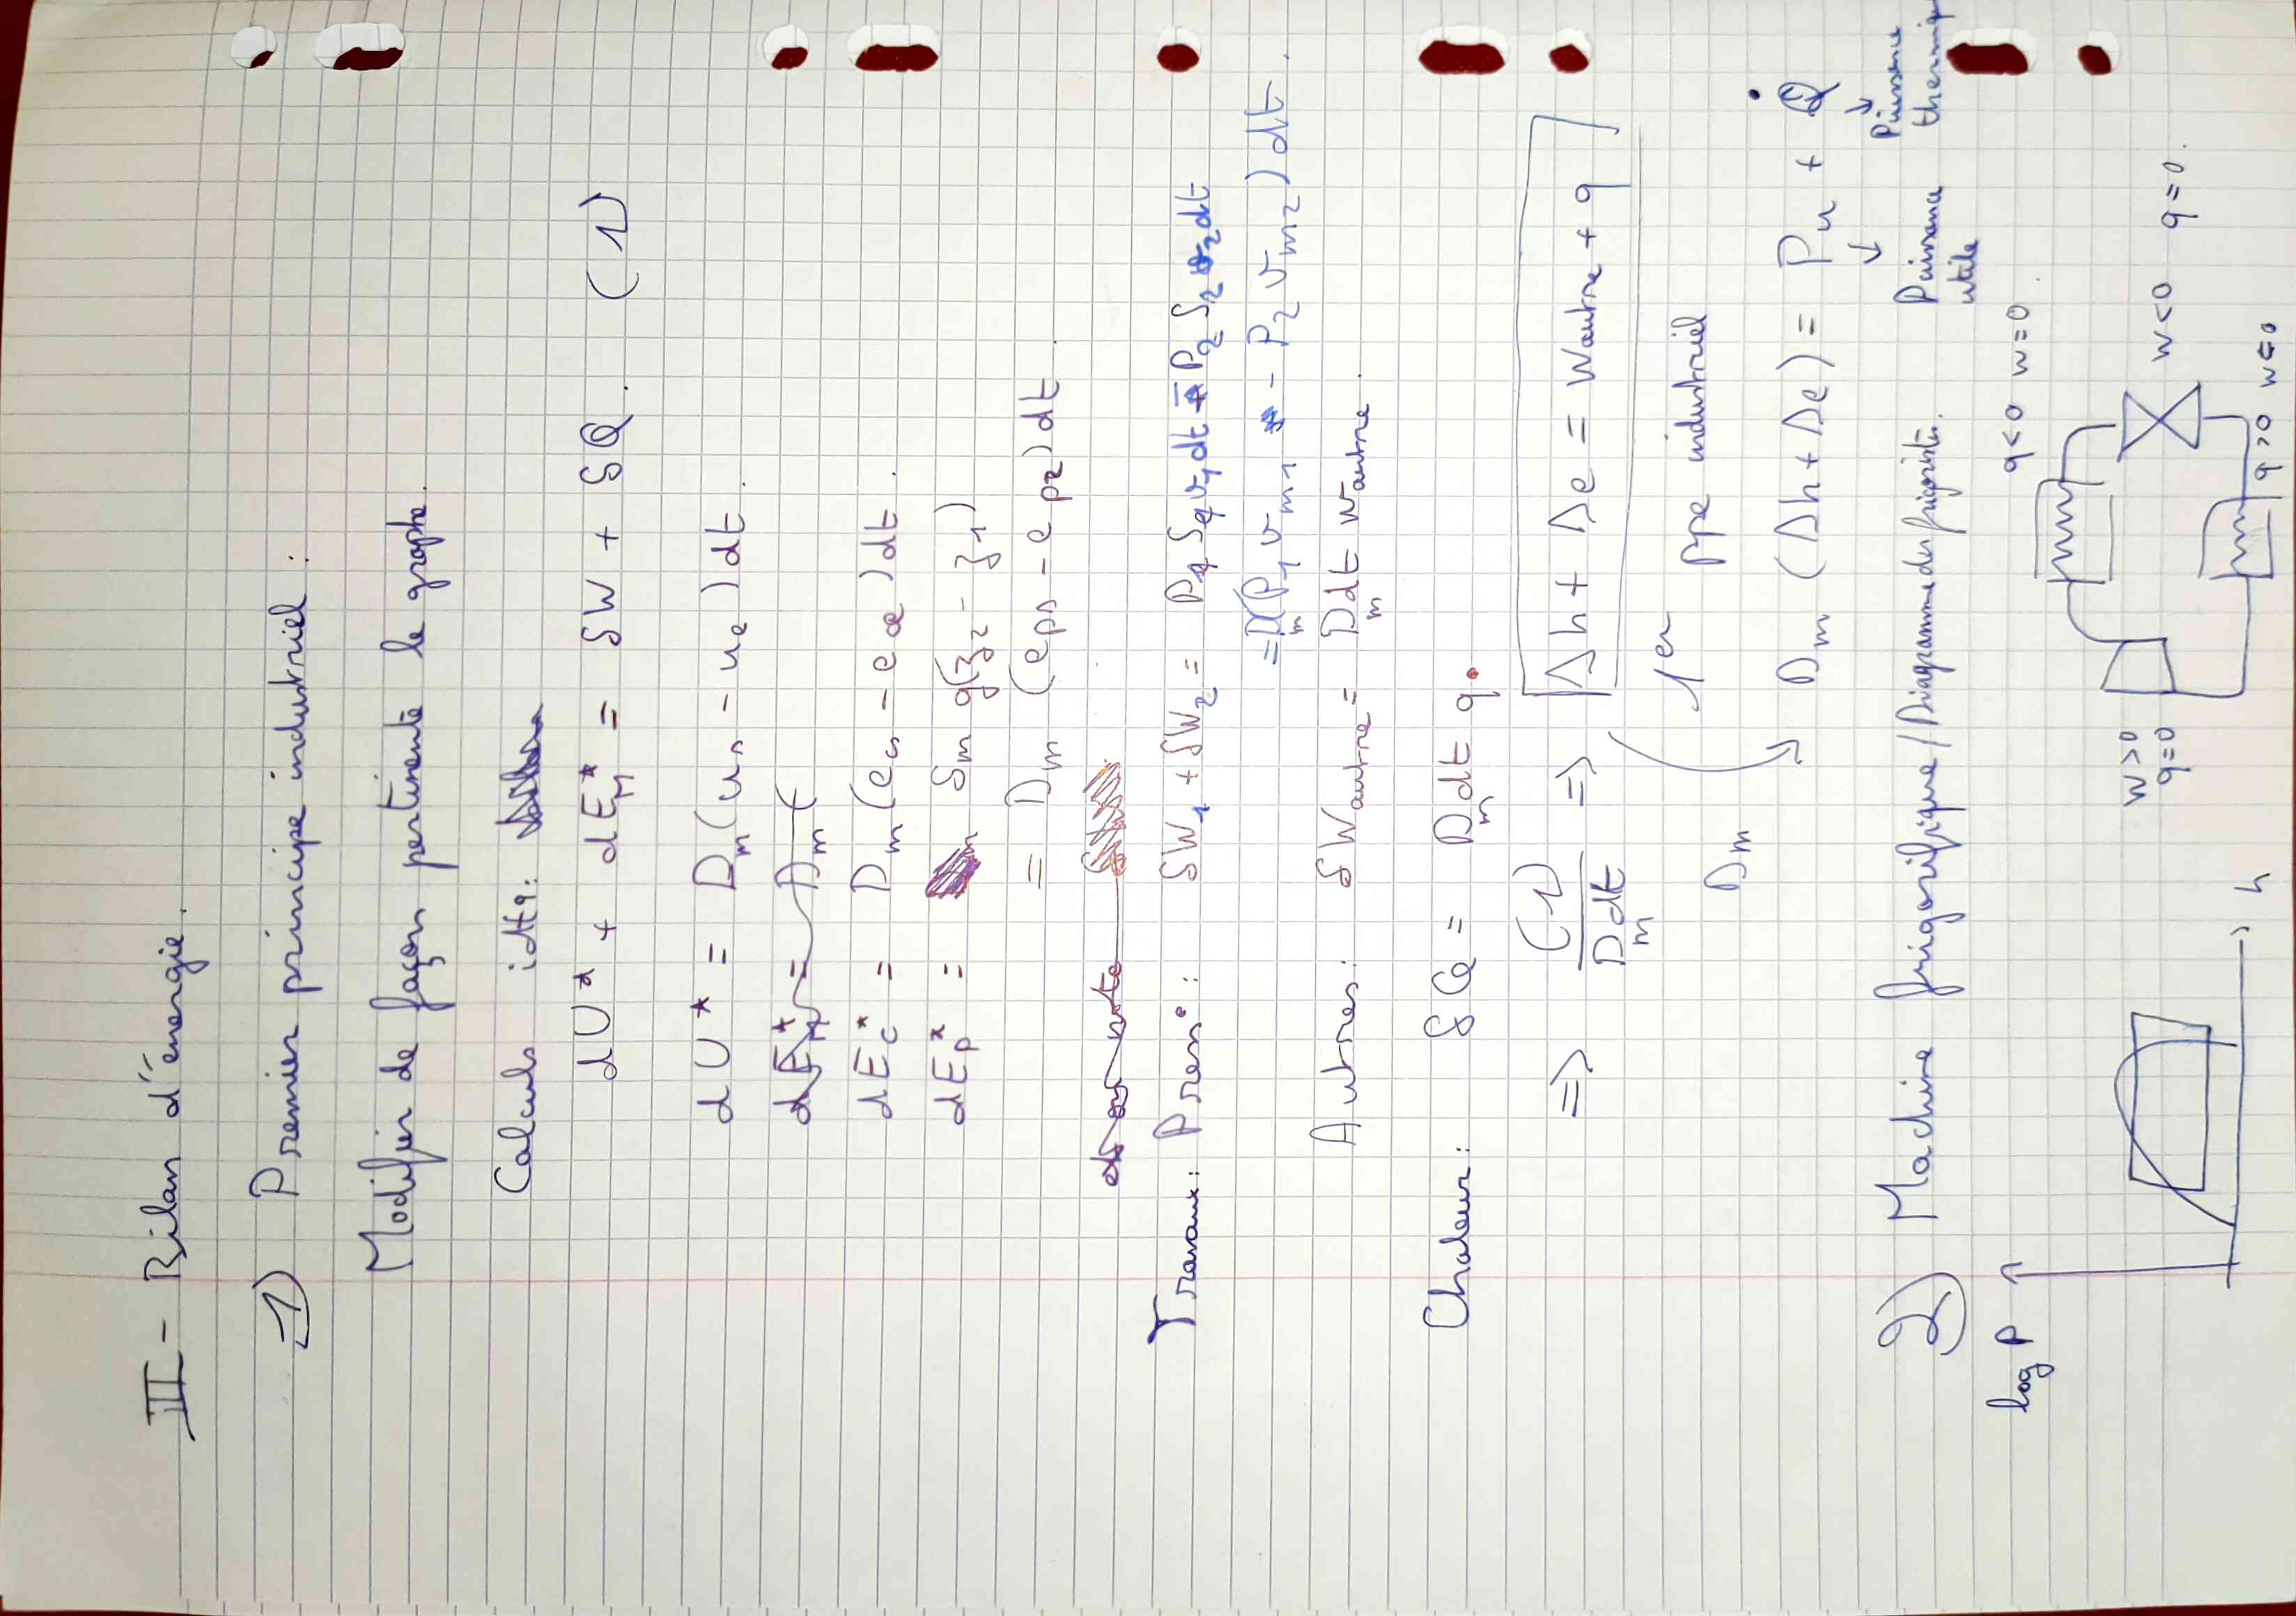 III - Bilan d'énergie.
1) Premier principe industriel :
Modifier de façon pertinente le graphe.
Calculs idtq:
dU* + dE_M* = δW + δQ. (1)
dU* = D_m (u_s - u_e) dt.
dE_M* = D_m (
dE_c* = D_m (e_cs - e_ce) dt.
dE_p* = δm g(z_2 - z_1)
= D_m (e_ps - e_p2) dt.
Travaux: Press°: δW_1 + δW_2 = P_1 S_1 v_1 dt - P_2 S_2 v_2 dt
= D_m (P_1 v_m1 - P_2 v_m2) dt.
Autres: δW_autre = D_m dt w_autre.
Chaleur: δQ = D_m dt q.
=> (1) / D_m dt => Δh + Δe = w_autre + q
1er ppe industriel
D_m
D_m (Δh + Δe) = P_u + Q̇
Puissance utile
Puissance thermique
2) Machine frigorifique / Diagramme des frigoristes.
log P
h
q<0 w=0
w>0
q=0
w<0 q=0.
q>0 w=0